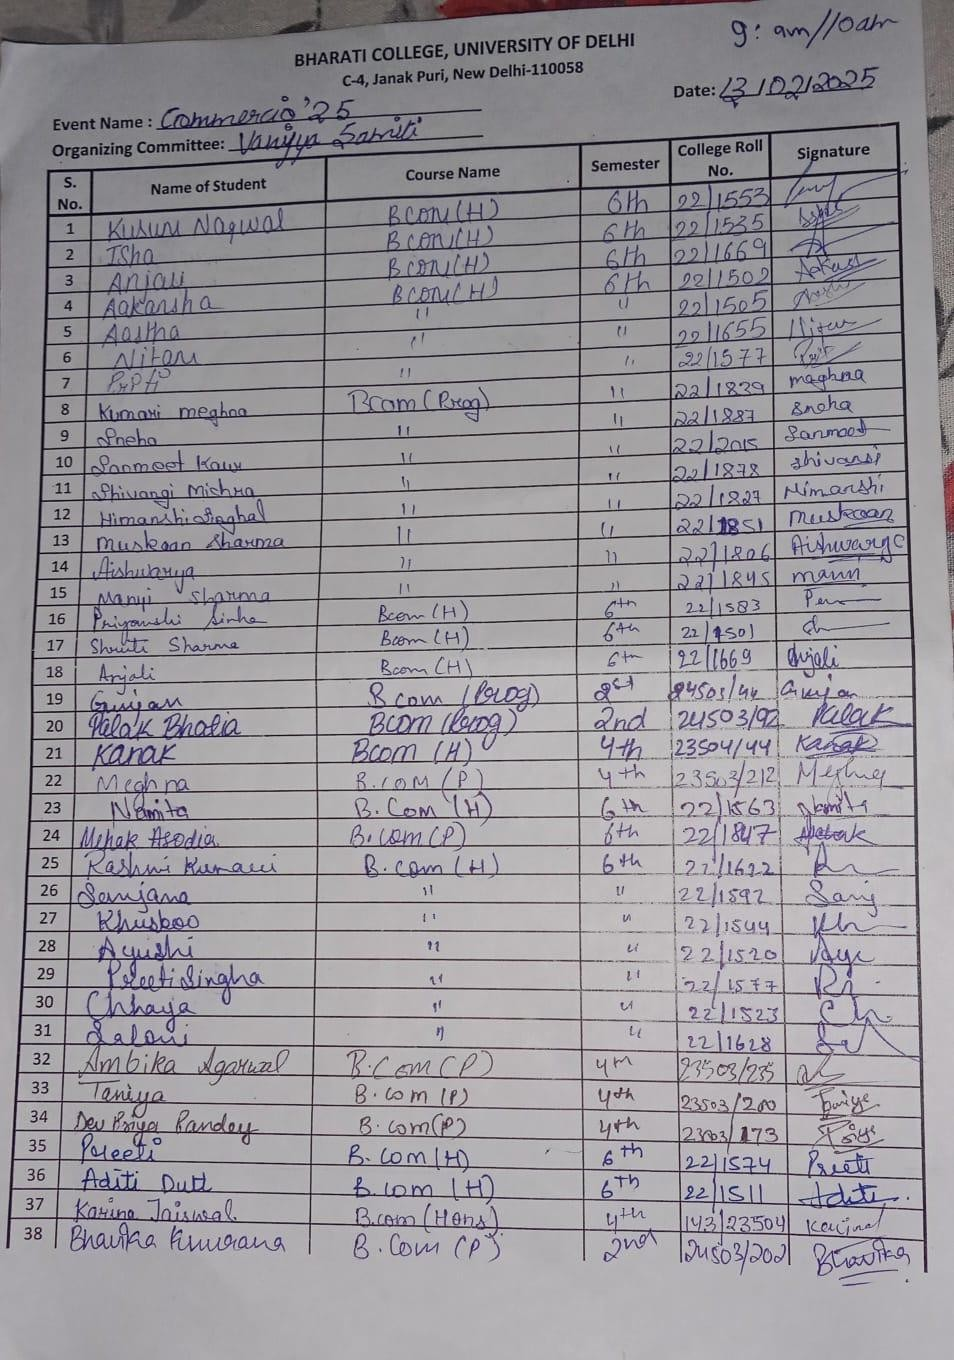 9: am//10am
BHARATI COLLEGE, UNIVERSITY OF DELHI
C-4, Janak Puri, New Delhi-110058
Date: 13/02/2025
Event Name : Commercio '25
Organizing Committee: Vanijya Samiti
S. No. Name of Student Course Name Semester College Roll No. Signature
1 Kusum Nagwal BCOM(H) 6th 22/1553
2 Isha BCOM(H) 6th 22/1535
3 Anjali BCOM(H) 6th 22/1669
4 Aakansha BCOM(H) 6th 22/1502
5 Aastha " " 22/1505
6 Nitan " " 22/1655
7 " " 22/1577
8 Kumari meghna Bcom (Prog) " 22/1839 meghna
9 Sneha " " 22/1887 Sneha
10 Sanmeet Kaur " " 22/2015 Sanmeet
11 Shivangi Mishra " " 22/1878
12 Himanshi Singhal " " 22/1827 Himanshi
13 Muskaan Sharma " " 22/1851 Muskaan
14 Aishwarya " " 22/1806
15 Sharma " " 22/1845
16 Priyanshi Sinha Bcom (H) 6th 22/1583
17 Shruti Sharma Bcom (H) 6th 22/1501
18 Anjali Bcom (H) 6th 22/1669 Anjali
19 Gunjan B com (Prog) 24503/44 Gunjan
20 Palak Bhatia Bcom (Prog) 2nd 24503/92 Palak
21 Kanak Bcom (H) 4th 23504/44 Kanak
22 Meghna B.COM (P) 4th 23503/212 Meghna
23 Namita B.Com (H) 6th 22/1563 Namita
24 Mehak Asodia B.com (P) 6th 22/1847
25 Rashmi Kumari B.com (H) 6th 22/1622
26 Sanjana " " 22/1592 Sanj
27 Khusboo " " 22/1544
28 Ayushi " " 22/1520
29 Preeti Singha " " 22/1577
30 Chhaya " " 22/1523
31 Saloni " " 22/1628
32 Ambika Agarwal B.Com (P) 4th 23503/235
33 Taniya B.com (P) 4th 23503/200
34 Dev Priya Pandey B.com(P) 4th 23503/173
35 Preeti B.com (H) 6th 22/1574 Preeti
36 Aditi Dutt B.com (H) 6th 22/1511 Aditi
37 Karina Jaiswal B.com (Hons) 4th 143/23504
38 Bhavika Khurana B.Com (P) 2nd 24503/202 Bhavika